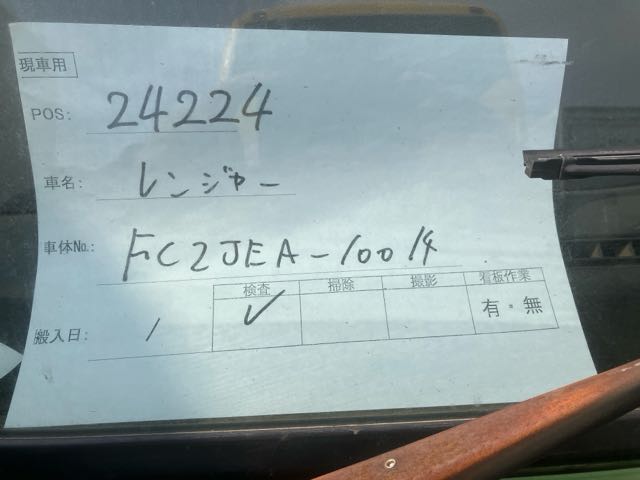 現車用
POS: 24224
車名: レンジャー
車体No.: FC2JEA-10014
検査 掃除 撮影 看板作業
搬入日: / ✓ 有・無